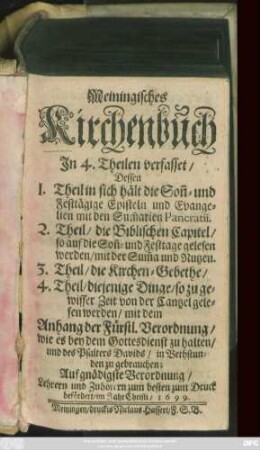 Meiningisches
Kirchenbuch
In 4. Theilen verfasset/
Dessen
1. Theil in sich hält die Soñ- und
Festtägige Episteln und Evange-
lien mit den Sum̃arien Pancratii.
2. Theil/ die Biblischen Capitel/
so auf die Soñ- und Festtage gelesen
werden/ mit der Sum̃a und Nutzen.
3. Theil/ die Kirchen-Gebethe/
4. Theil/ diejenige Dinge/ so zu ge-
wisser Zeit von der Cantzel gele-
sen werden/ mit dem
Anhang der Fürstl. Verordnung/
wie es bey dem Gottesdienst zu halten/
und des Psalters Davids/ in Bethstun-
den zu gebrauchen:
Auf gnädigste Verordnung/
Lehrern und Zuhörern zum besten zum Druck
befördert/ im Jahr Christi/ 1699.
Meiningen/ druckts Niclaus Hassert/ F. S. B.